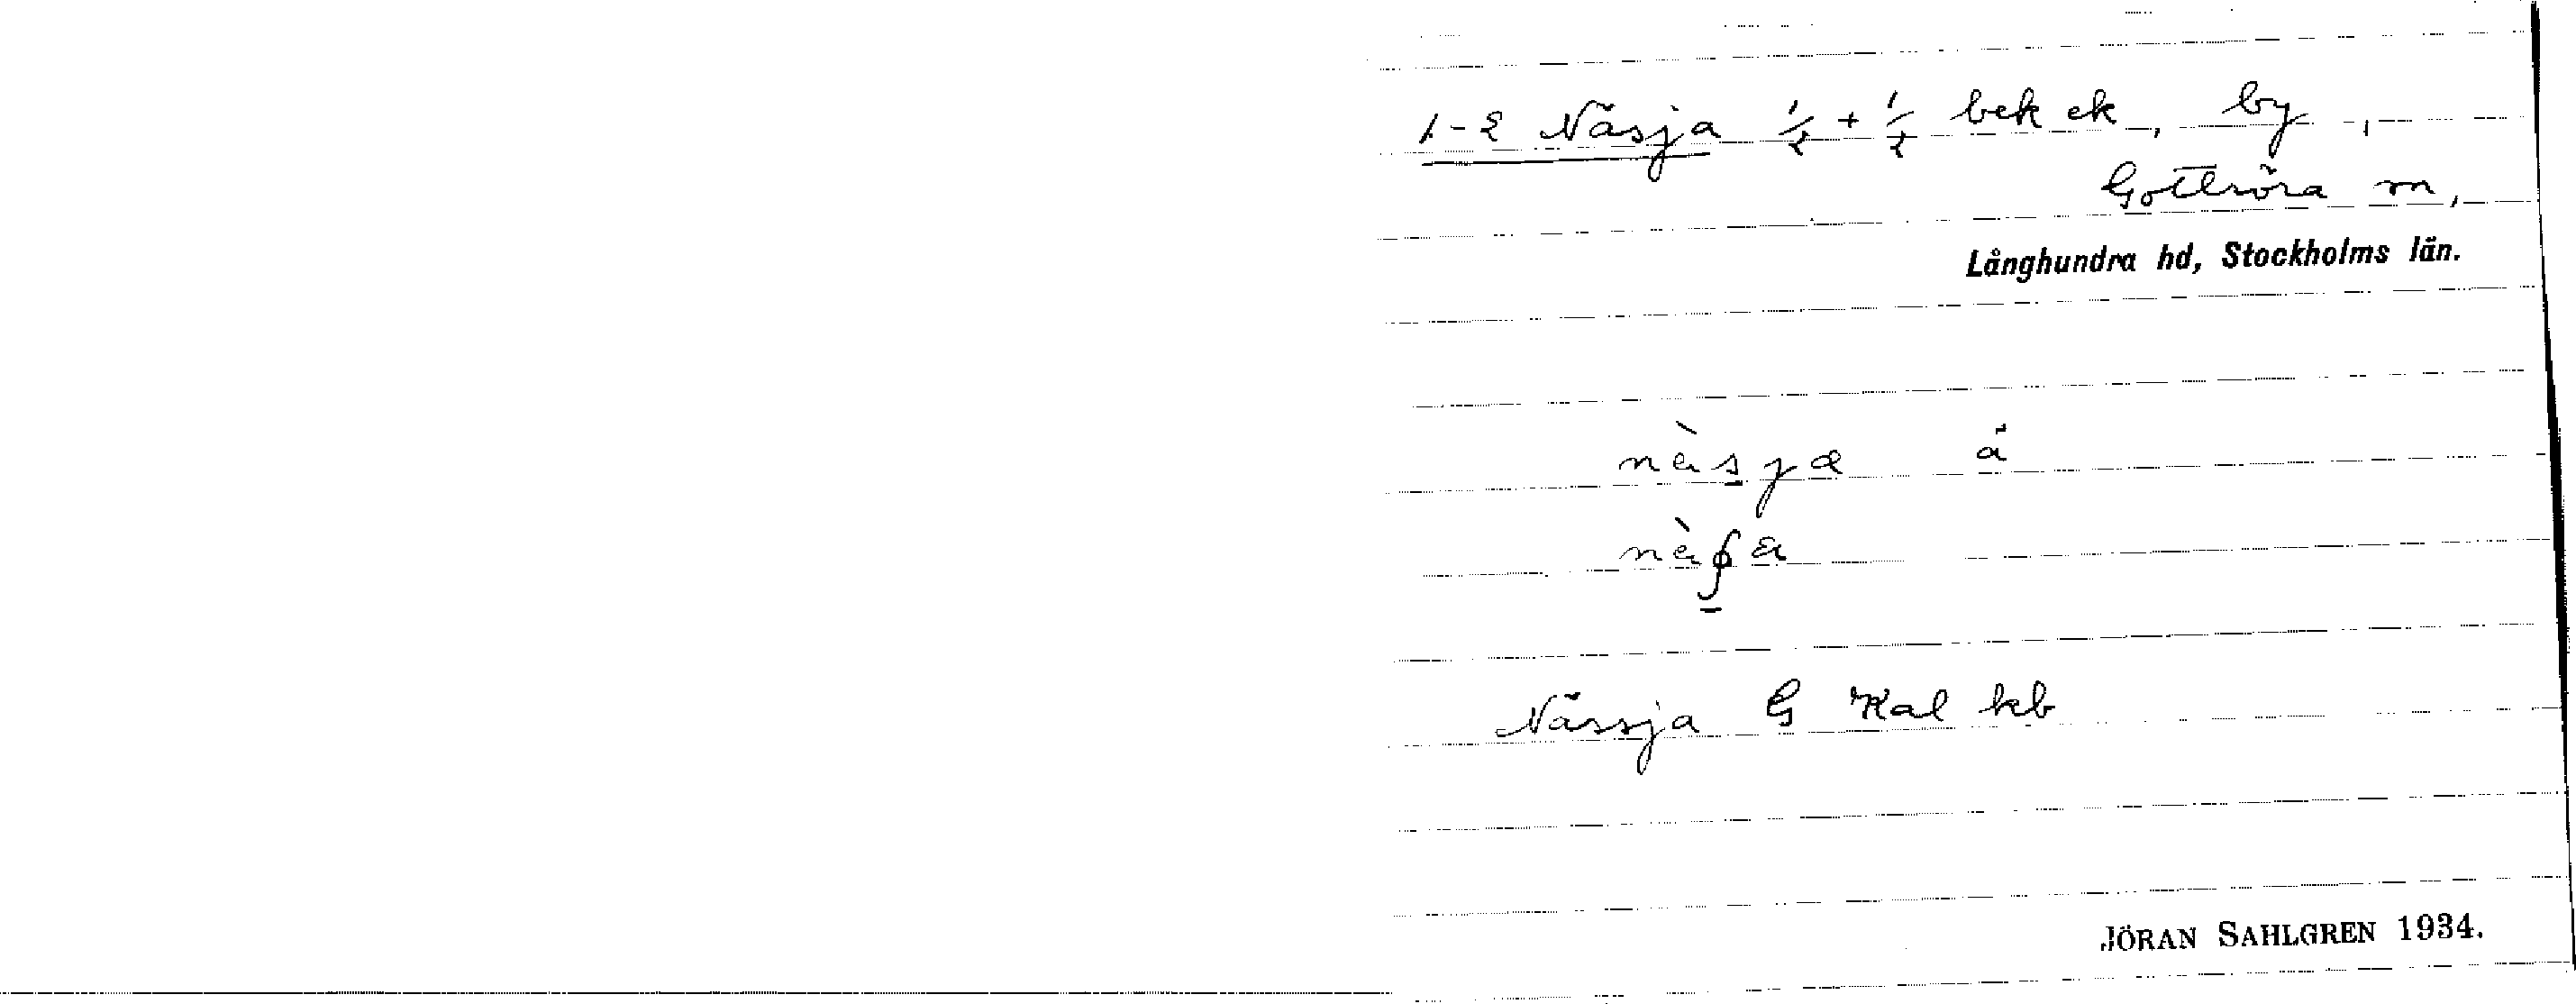 1-2 Näsja 1/2 + 1/2 bek ek, by,
Gottröra sn,
Långhundra hd, Stockholms län.
Nässja G Kal kb
JÖRAN SAHLGREN 1934.